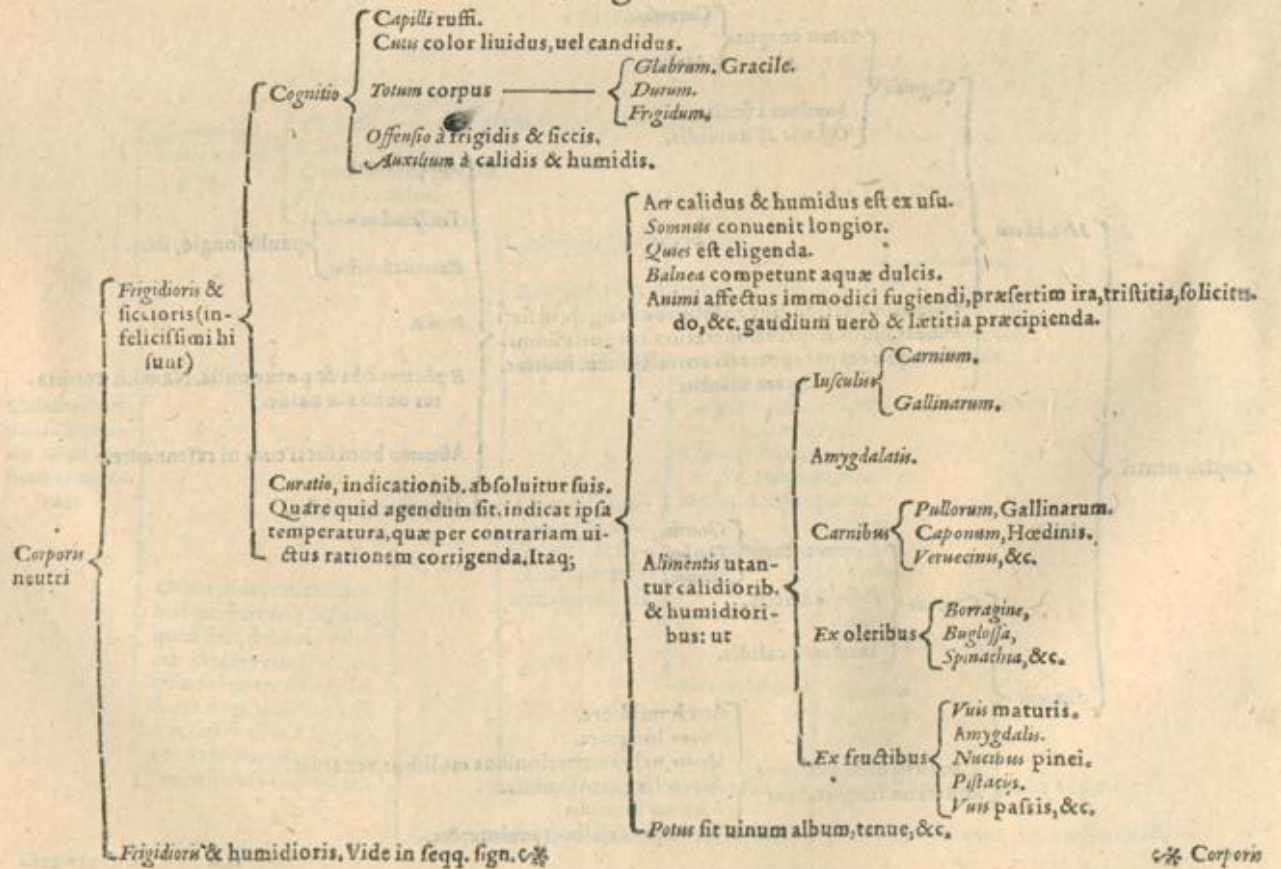 Corporis
neutri
Frigidioris &
siccioris (in-
felicissimi hi
sunt)
Cognitio
Capilli ruffi.
Cutis color liuidus, uel candidus.
Totum corpus
Glabrum. Gracile.
Durum.
Frigidum.
Offensio à frigidis & siccis.
Auxilium à calidis & humidis.
Curatio, indicationib. absoluitur suis.
Quare quid agendum sit, indicat ipsa
temperatura, quæ per contrariam ui-
ctus rationem corrigenda. Itaq;
Aer calidus & humidus est ex usu.
Somnus conuenit longior.
Quies est eligenda.
Balnea competunt aquæ dulcis.
Animi affectus immodici fugiendi, præsertim ira, tristitia, solicitu-
do, &c. gaudium uerò & Lætitia præcipienda.
Alimentis utan-
tur calidiorib.
& humidiori-
bus: ut
Iusculis
Carnium.
Gallinarum.
Amygdalatis.
Carnibus
Pullorum, Gallinarum.
Caponum, Hœdinis.
Veruecinis, &c.
Ex oleribus
Borragine,
Buglossa,
Spinachia, &c.
Ex fructibus
Vuis maturis.
Amygdalis.
Nucibus pinei.
Pistacijs.
Vuis passis, &c.
Potus sit uinum album, tenue, &c.
Frigidioris & humidioris. Vide in seqq. sign.
Corporis